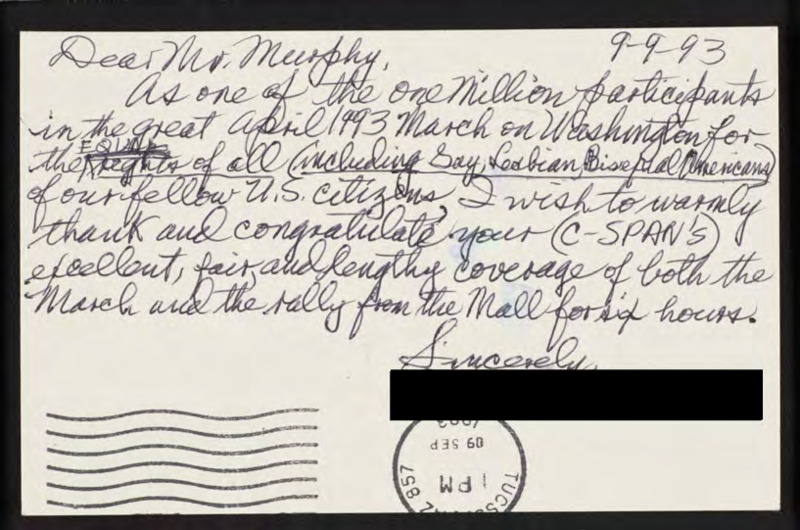 9-9-93
Dear Mr. Murphy,
As one of the one Million participants
in the great April 1993 March on Washington for
EQUAL
the rights of all (including Gay, Lesbian, Bisexual Americans)
of our fellow U.S. citizens, I wish to warmly
thank and congratulate your (C-SPAN's)
excellent, fair, and lengthy coverage of both the
March and the rally from the Mall for six hours.
Sincerely,
1993
09 SEP
1 PM
857